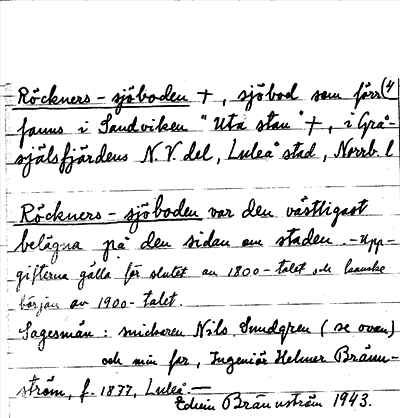 Röckners-sjöboden +, sjöbod som förr (4
fanns i Sandviken "Uta stan" +, i Grå-
själsfjärdens N.V. del, Luleå stad, Norrb. l
Röckners-sjöboden var den västligast
belägna på den sidan om staden. - Upp-
gifterna gälla för slutet av 1800-talet och kanske
början av 1900-talet.
Sagesmän: snickaren Nils Sundgren (se ovan)
och min far, Ingeniör Helmer Bränn-
ström, f. 1877, Luleå. —
Edvin Brännström 1943.